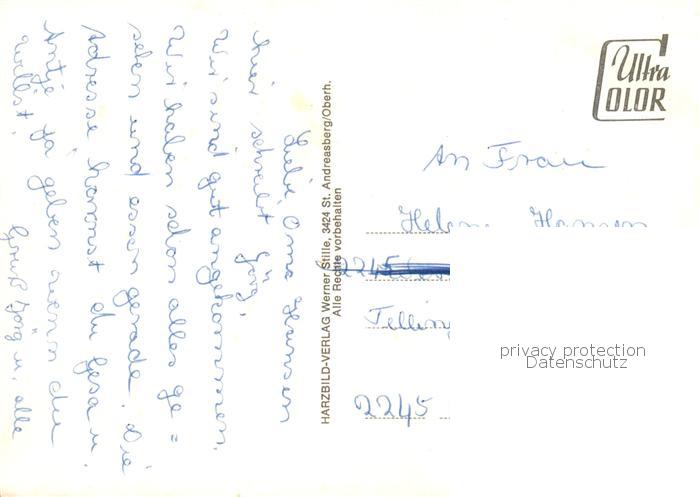 Liebe Oma Hansen
hier schreibt Jörg.
Wir sind gut angekommen.
Wir haben schon alles ge=
sehen und essen gerade. Die
Adresse kannst du Gesa u.
Antje ja geben wenn du
willst.
Gruß Jörg u. alle
HARZBILD-VERLAG Werner Stille, 3424 St. Andreasberg/Oberh.
Alle Rechte vorbehalten
Ultra
COLOR
An Frau
Hansen
2245
Telling
2245
privacy protection
Datenschutz